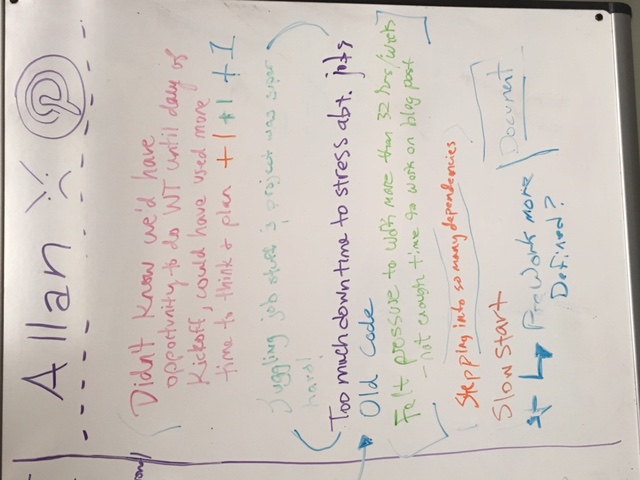 Allan
Didn't know we'd have
opportunity to do WT until day of
Kickoff, could have used more
time to think & plan +1 +1 +1
Juggling job stuff & project was super
hard!
Too much down time to stress abt. jobs
Old Code
Felt pressure to work more than 32 hrs/week
- not enough time to work on blog post
Stepping into so many dependencies
Slow Start
PreWork more
Defined?
Document